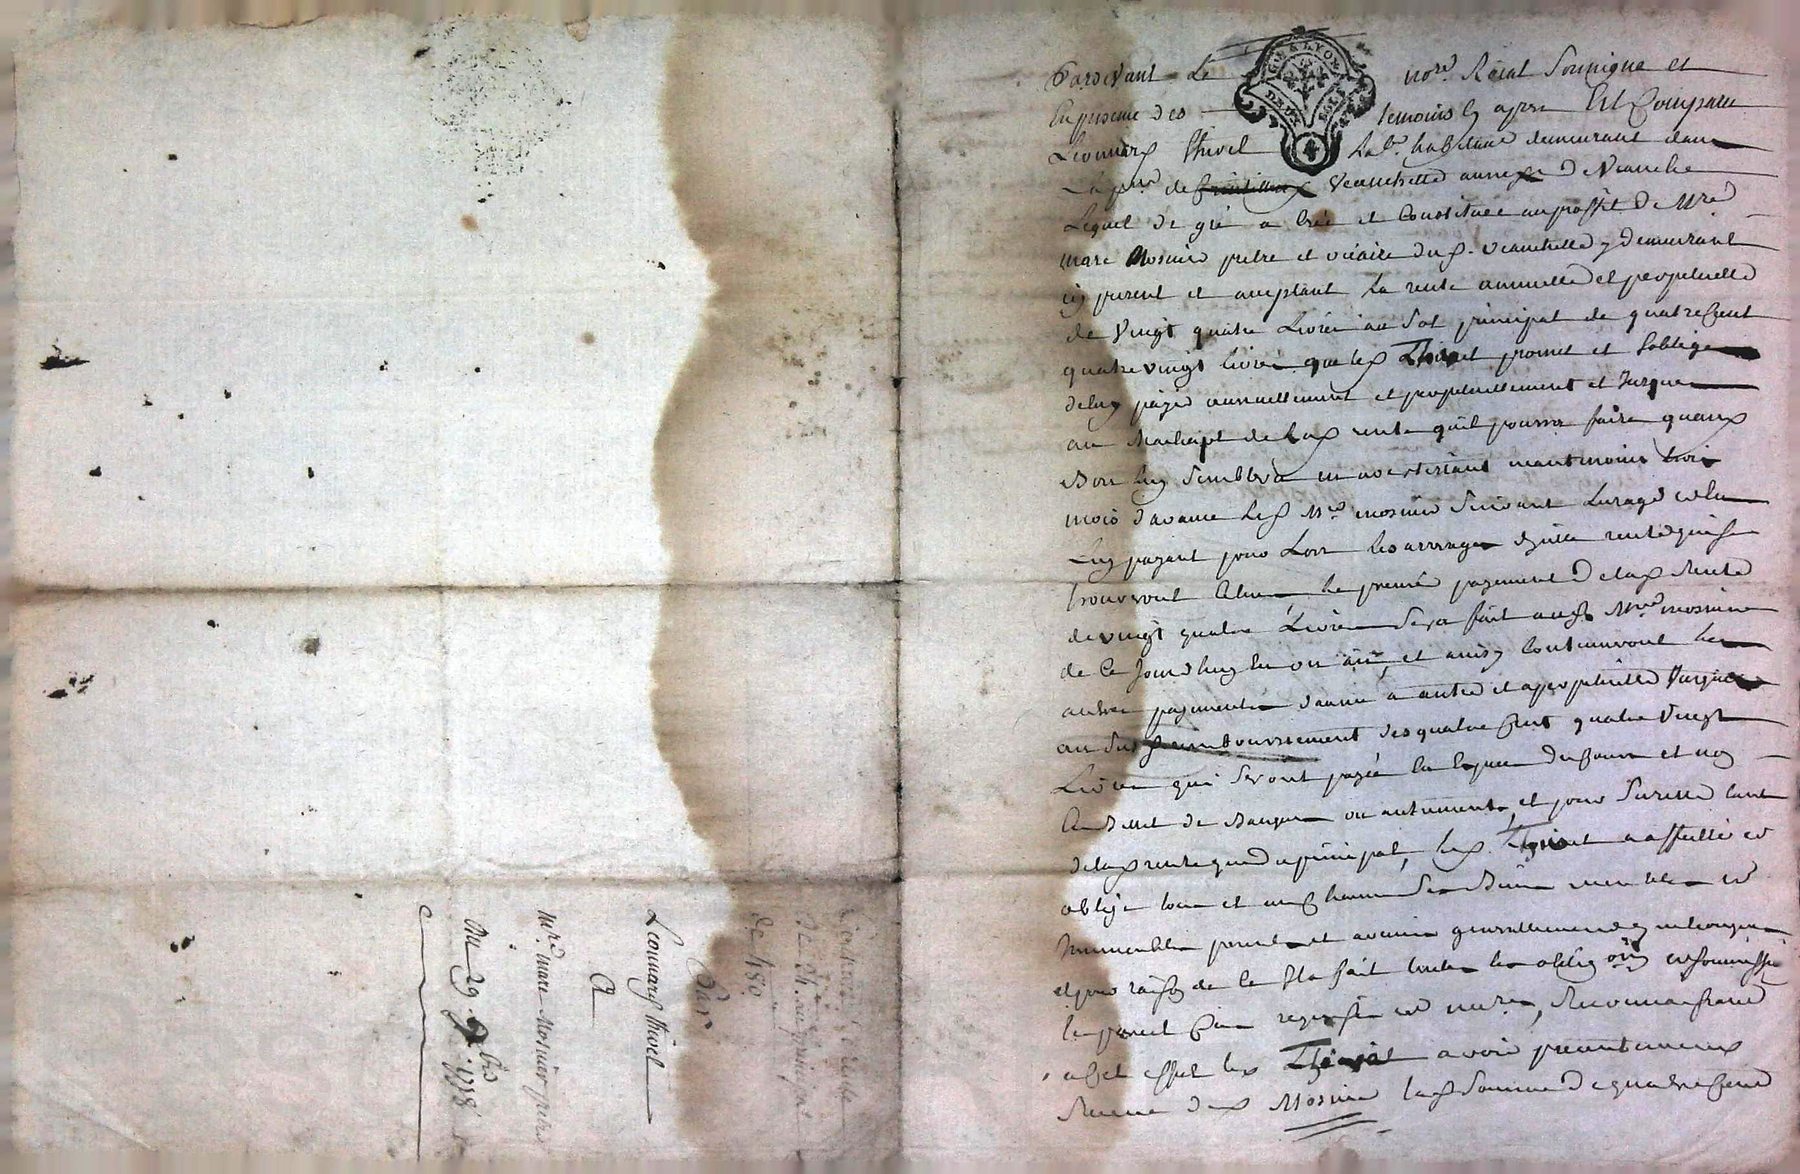 GN. DE LYON
DEUX SOLS
4
Pardevant Le nore. Roial Soussigné et
En presence des temoins cy apres Est Comparu
Leonnard Thivel Labr. habitant demeurant dans
La psse. de Veauchette annexe de Veauche
Lequel de gré a creé et Constitué au proffit de Mre.
marc Mosnier pretre et vicaire dud. Veauchette y demeurant
icy present et acceptant La rente annuelle et perpetuelle
de Vingt quatre Livres au Sol principal de quatre Cent
quatre vingt Livres que led. Thivel promet et Soblige
de luy payer annuellement et perpetuellement et Jusques
au Rachapt de lad. rente quil pourra faire quand
Bon luy Semblera en avertissant neantmoins trois
mois davance led. Mre. mosnier Suivant Lusage et en
Luy payant pour Lors les arrerages de ditte rente qui se
trouveront Echus, Le premier payement de lad. Rente
de vingt quatre Livres Sera fait aud. Mre. mosnier
de Ce Jourdhuy En un an, et ainsy Continueront les
autres payements dannée a autre et a perpetuité Jusques
au dit remboursement des quatre Cent quatre Vingt
Livres qui Seront payés En Especes du Cours et non
En Billet de Banque ou autrement, et pour Sureté tant
de lad. rente que du principal, led. Thivel a affecté et
obligé tous et un Chacun Ses Biens meubles et
Immeubles presents et avenir generallement quelconques
et pour raison de Ce Il a fait toutes les obligons. et Soumissions
a Cet effet led. Thivel avoir presentement
Receu dud. Mosnier lad. Somme de quatre Cent
Contrat de rente
de 24 ll. au principal
de 480
Par
Leonnard Thivel
A
Mre. marc Mosnier pretre
Du 29 9bre 1758